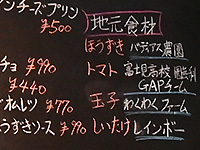 ンチーズプリン
¥500
チョ ¥990
¥440
オムレツ ¥770
うずきソース ¥990
地元食材
ほうずき バラディス農園
トマト 富士見高校 養液栽培
GAPチーム
玉子 わくわくファーム
しいたけ レインボー